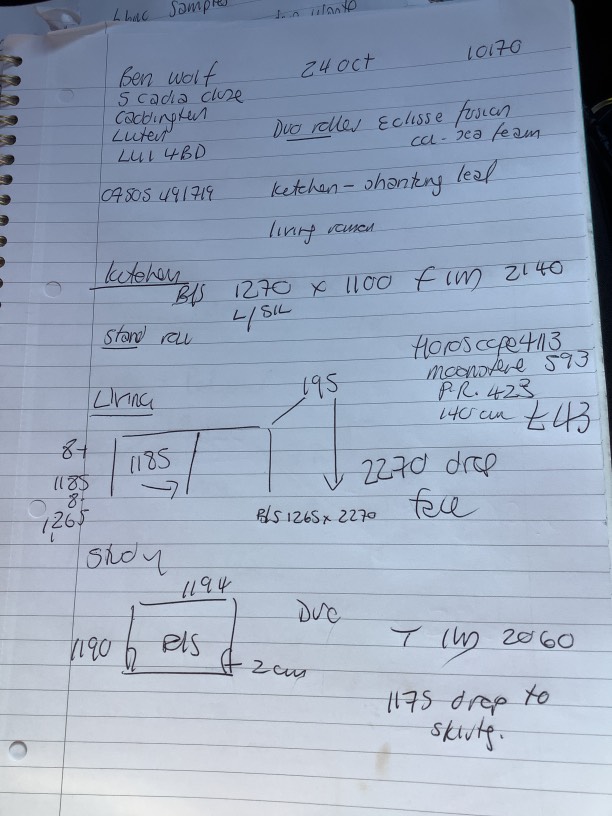 Lhac Samples
Ben Wolf 24 Oct 10170
5 Cadia Close
Caddington
Luton
LU1 4BD
Duo roller Eclisse fusion
ca. sea foam
07805 491719
kitchen - shantung leaf
living roman
kitchen
B/S 1270 x 1100 F IW 2140
L/SIL
Stand roll
Horoscope 413
593
P.R. 423
140 cm £43
Living
195
84
1185
1185
8-
1,265
2270 drop
face
B/S 1265 x 2270
Study
1194
Duo
1190
B/S
2 cm
T IW 2060
1175 drop to
skirtg.